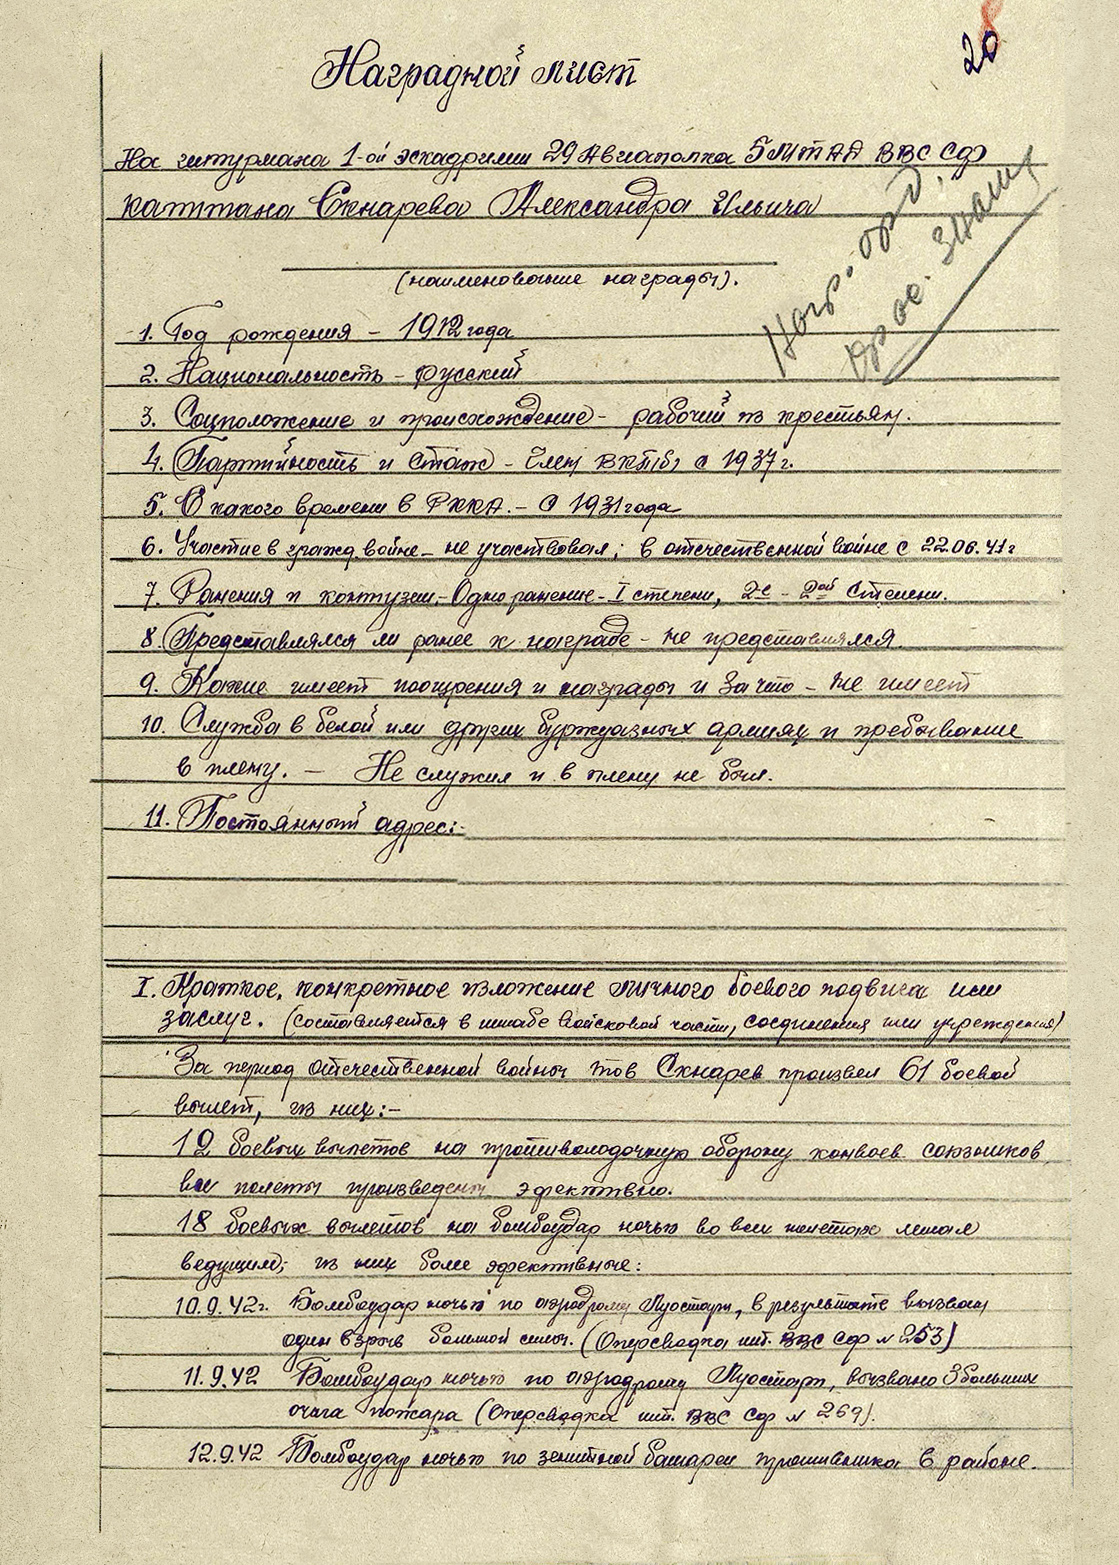 20
Наградной лист
На штурмана 1-ой эскадрилии 29 Авиаполка 5МТАД ВВС СФ
капитана Скнарева Александра Ильича
Нагр. орд.
Крас. Знам
(наименование награды).
1. Год рождения - 1912 года
2. Национальность - русский
3. Соцположение и происхождение - рабочий из крестьян.
4. Партийность и стаж - Член ВКП(б) с 1937 г.
5. С какого времени в РККА. - С 1931 года
6. Участие в гражд. войне - не участвовал; в отечественной войне с 22.06.41 г
7. Ранения и контузии. - Одно ранение - I степени, 2-е - 2ой степени.
8. Представлялся ли ранее к награде - не представлялся.
9. Какие имеет поощрения и награды и за что - не имеет
10. Служба в белой или других буржуазных армиях и пребывание
в плену. - Не служил и в плену не был.
11. Постоянный адрес: -
I. Краткое, конкретное изложение личного боевого подвига или
заслуг. (составляется в штабе войсковой части, соединения или учреждения)
За период отечественной войны тов Скнарев произвел 61 боевой
вылет, из них: -
12 боевых вылетов на противолодочную оборону конвоев союзников,
все полеты произведены эфективно.
18 боевых вылетов на бомбоудар ночью во всех полетах летал
ведущим; из них более эфективные:
10.9.42г. Бомбоудар ночью по аэродрому Луостари, в результате вызван
один взрыв большой силы. (Оперсводка шт. ВВС СФ № 253)
11.9.42 Бомбоудар ночью по аэродрому Луостари, вызвано 3 больших
очага пожара (Оперсводка шт. ВВС СФ № 269).
12.9.42 Бомбоудар ночью по зенитной батареи противника в районе.